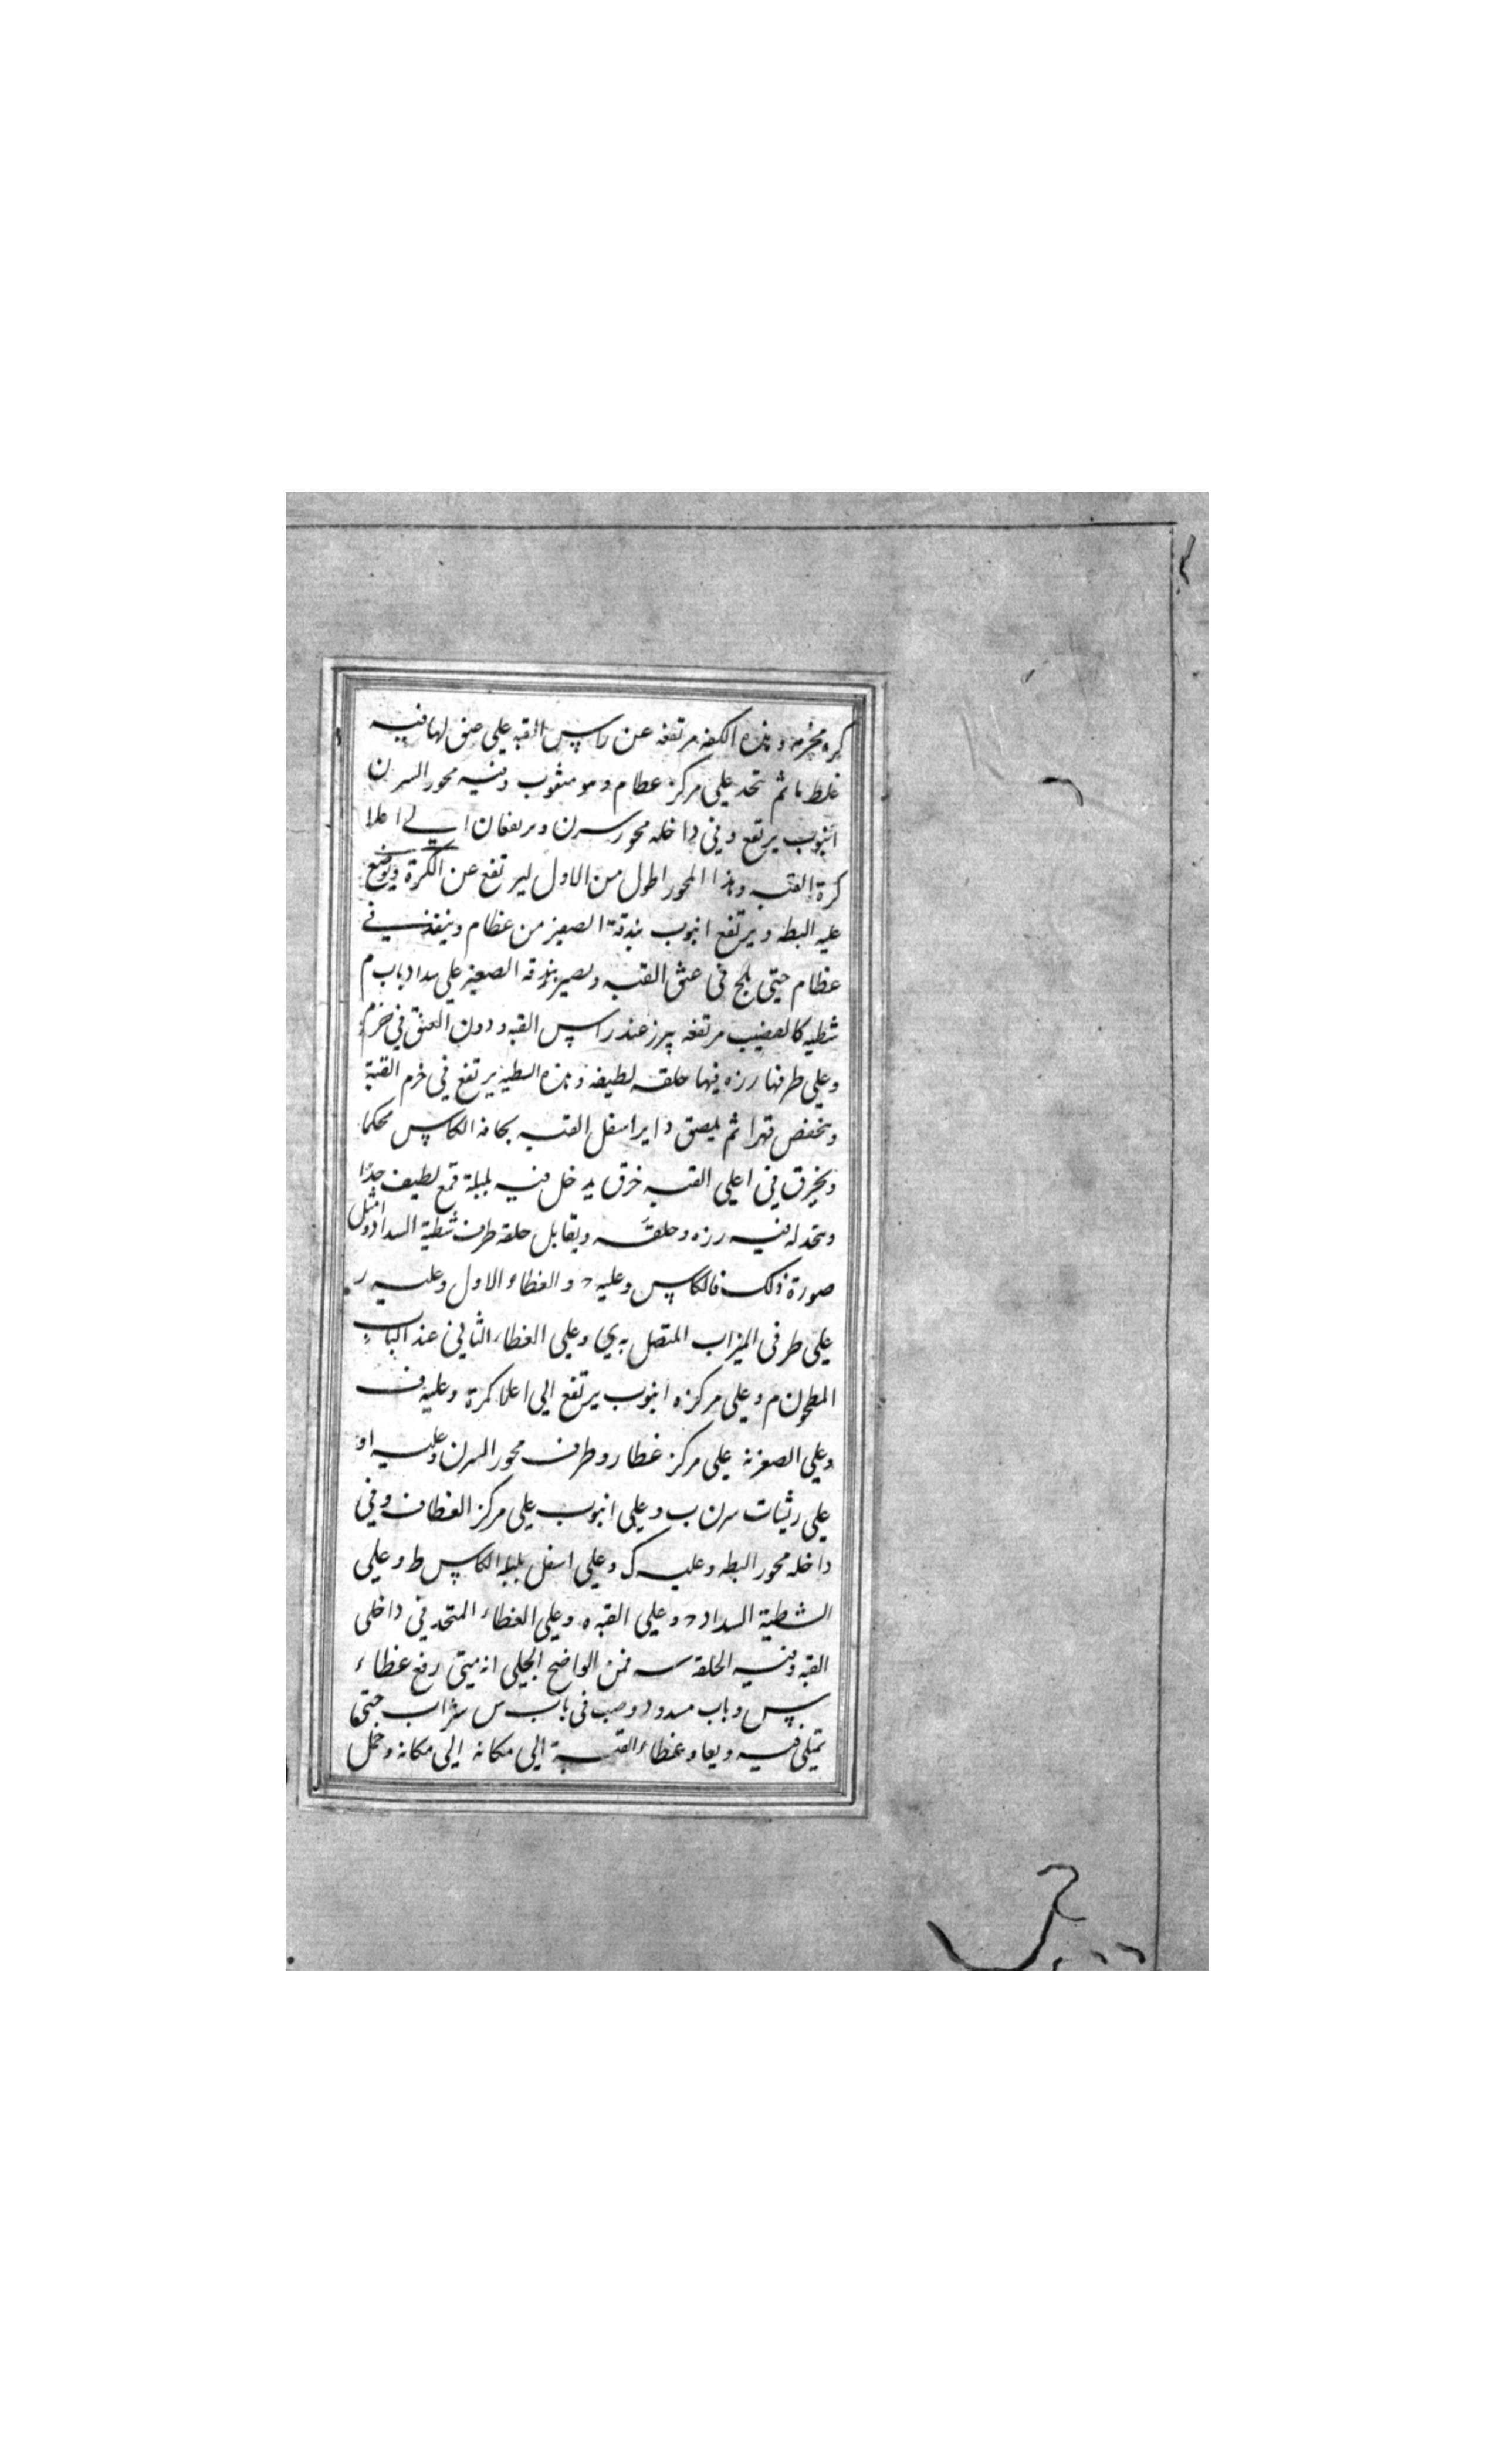 كره مخرمه وهذه الكفه مرتفعه عن راس القبه علي عنق لها فيه
غلط ما ثم تحد علي مركز عطام وهو مثقوب وفيه محور السرن
انبوب يرتفع وفي داخله محور سرن ويرتفعان الي اعلا
كرة القبه وهذا المحور اطول من الاول ليرتفع عن الكرة ويوضع
عليه البطه ويرتفع انبوب بندقة الصغيز من غظام وينفذ في
عظام حتي يلج في عنق القبه ويصير بندقه الصغيز علي سداد باب م
شظيه كالقضيب مرتفعه يبرز عند راس القبه ودون العنق في خرم
وعلي طرفها رزه فيها حلقه لطيفه وهذه الشظيه يرتفع في خرم القبة
وتنخفض قهرا ثم يلصق دايرا سفل القبه بحافة الكاس محكما
ويخرق في اعلي القبه خرق يدخل فيه بلبلة قمع لطيف جدّا
ويتخذ له فيه رزه وحلقه ويقابل حلقه طرف شظية السداد وامثل
صورة ذلك فالكاس وعليه د والغطاء الاول وعليه ر
علي طرفي الميزاب المتصل به ي وعلي الغطاء الثاني عند الباب
المطحون م وعلي مركزه انبوب يرتفع الي اعلا كمرة وعليه ف
وعلي الصغزنة علي مركز غطا ر وطرف محور السرن وعليه او
علي ريشات سرن ب وعلي انبوب علي مركز الغطا ف وفي
داخله محور البطه وعليه ك وعلي اسفل بلبلة الكاس ط وعلي
الشظية السداد د وعلي القبه ه وعلي الغطاء المتحد في داخلي
القبه وفيه الحلقه س فمن الواضح الجلي انه ميتي رفع غطاء
س وباب مسدود وصب في باب س شراب حتي
تمتلي فيه ويعاد غطاء القبة الي مكانه الي مكانه وحمل